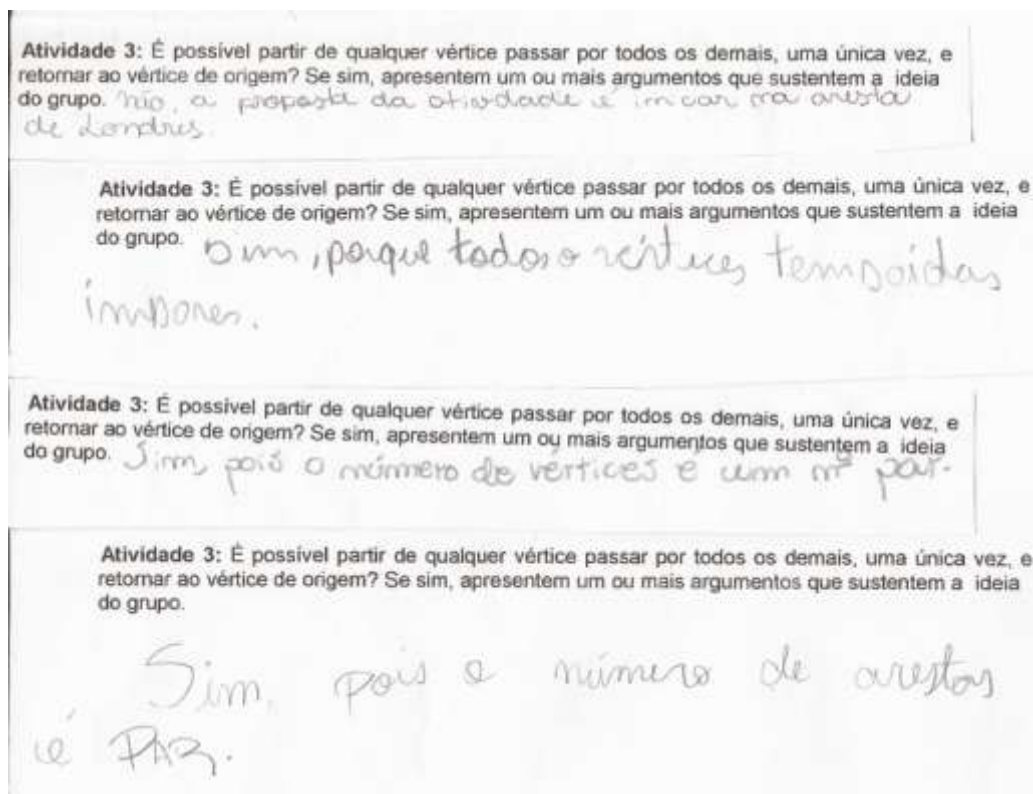 Atividade 3: É possível partir de qualquer vértice passar por todos os demais, uma única vez, e
retornar ao vértice de origem? Se sim, apresentem um ou mais argumentos que sustentem a ideia
do grupo. Não, a proposta da atividade é iniciar na aresta
de Londres.
Atividade 3: É possível partir de qualquer vértice passar por todos os demais, uma única vez, e
retornar ao vértice de origem? Se sim, apresentem um ou mais argumentos que sustentem a ideia
do grupo. Sim, porque todos o vértices tem saídas
ímpares.
Atividade 3: É possível partir de qualquer vértice passar por todos os demais, uma única vez, e
retornar ao vértice de origem? Se sim, apresentem um ou mais argumentos que sustentem a ideia
do grupo. Sim, pois o número de vértices é um nº par.
Atividade 3: É possível partir de qualquer vértice passar por todos os demais, uma única vez, e
retornar ao vértice de origem? Se sim, apresentem um ou mais argumentos que sustentem a ideia
do grupo.
Sim, pois o número de arestas
é PAR.